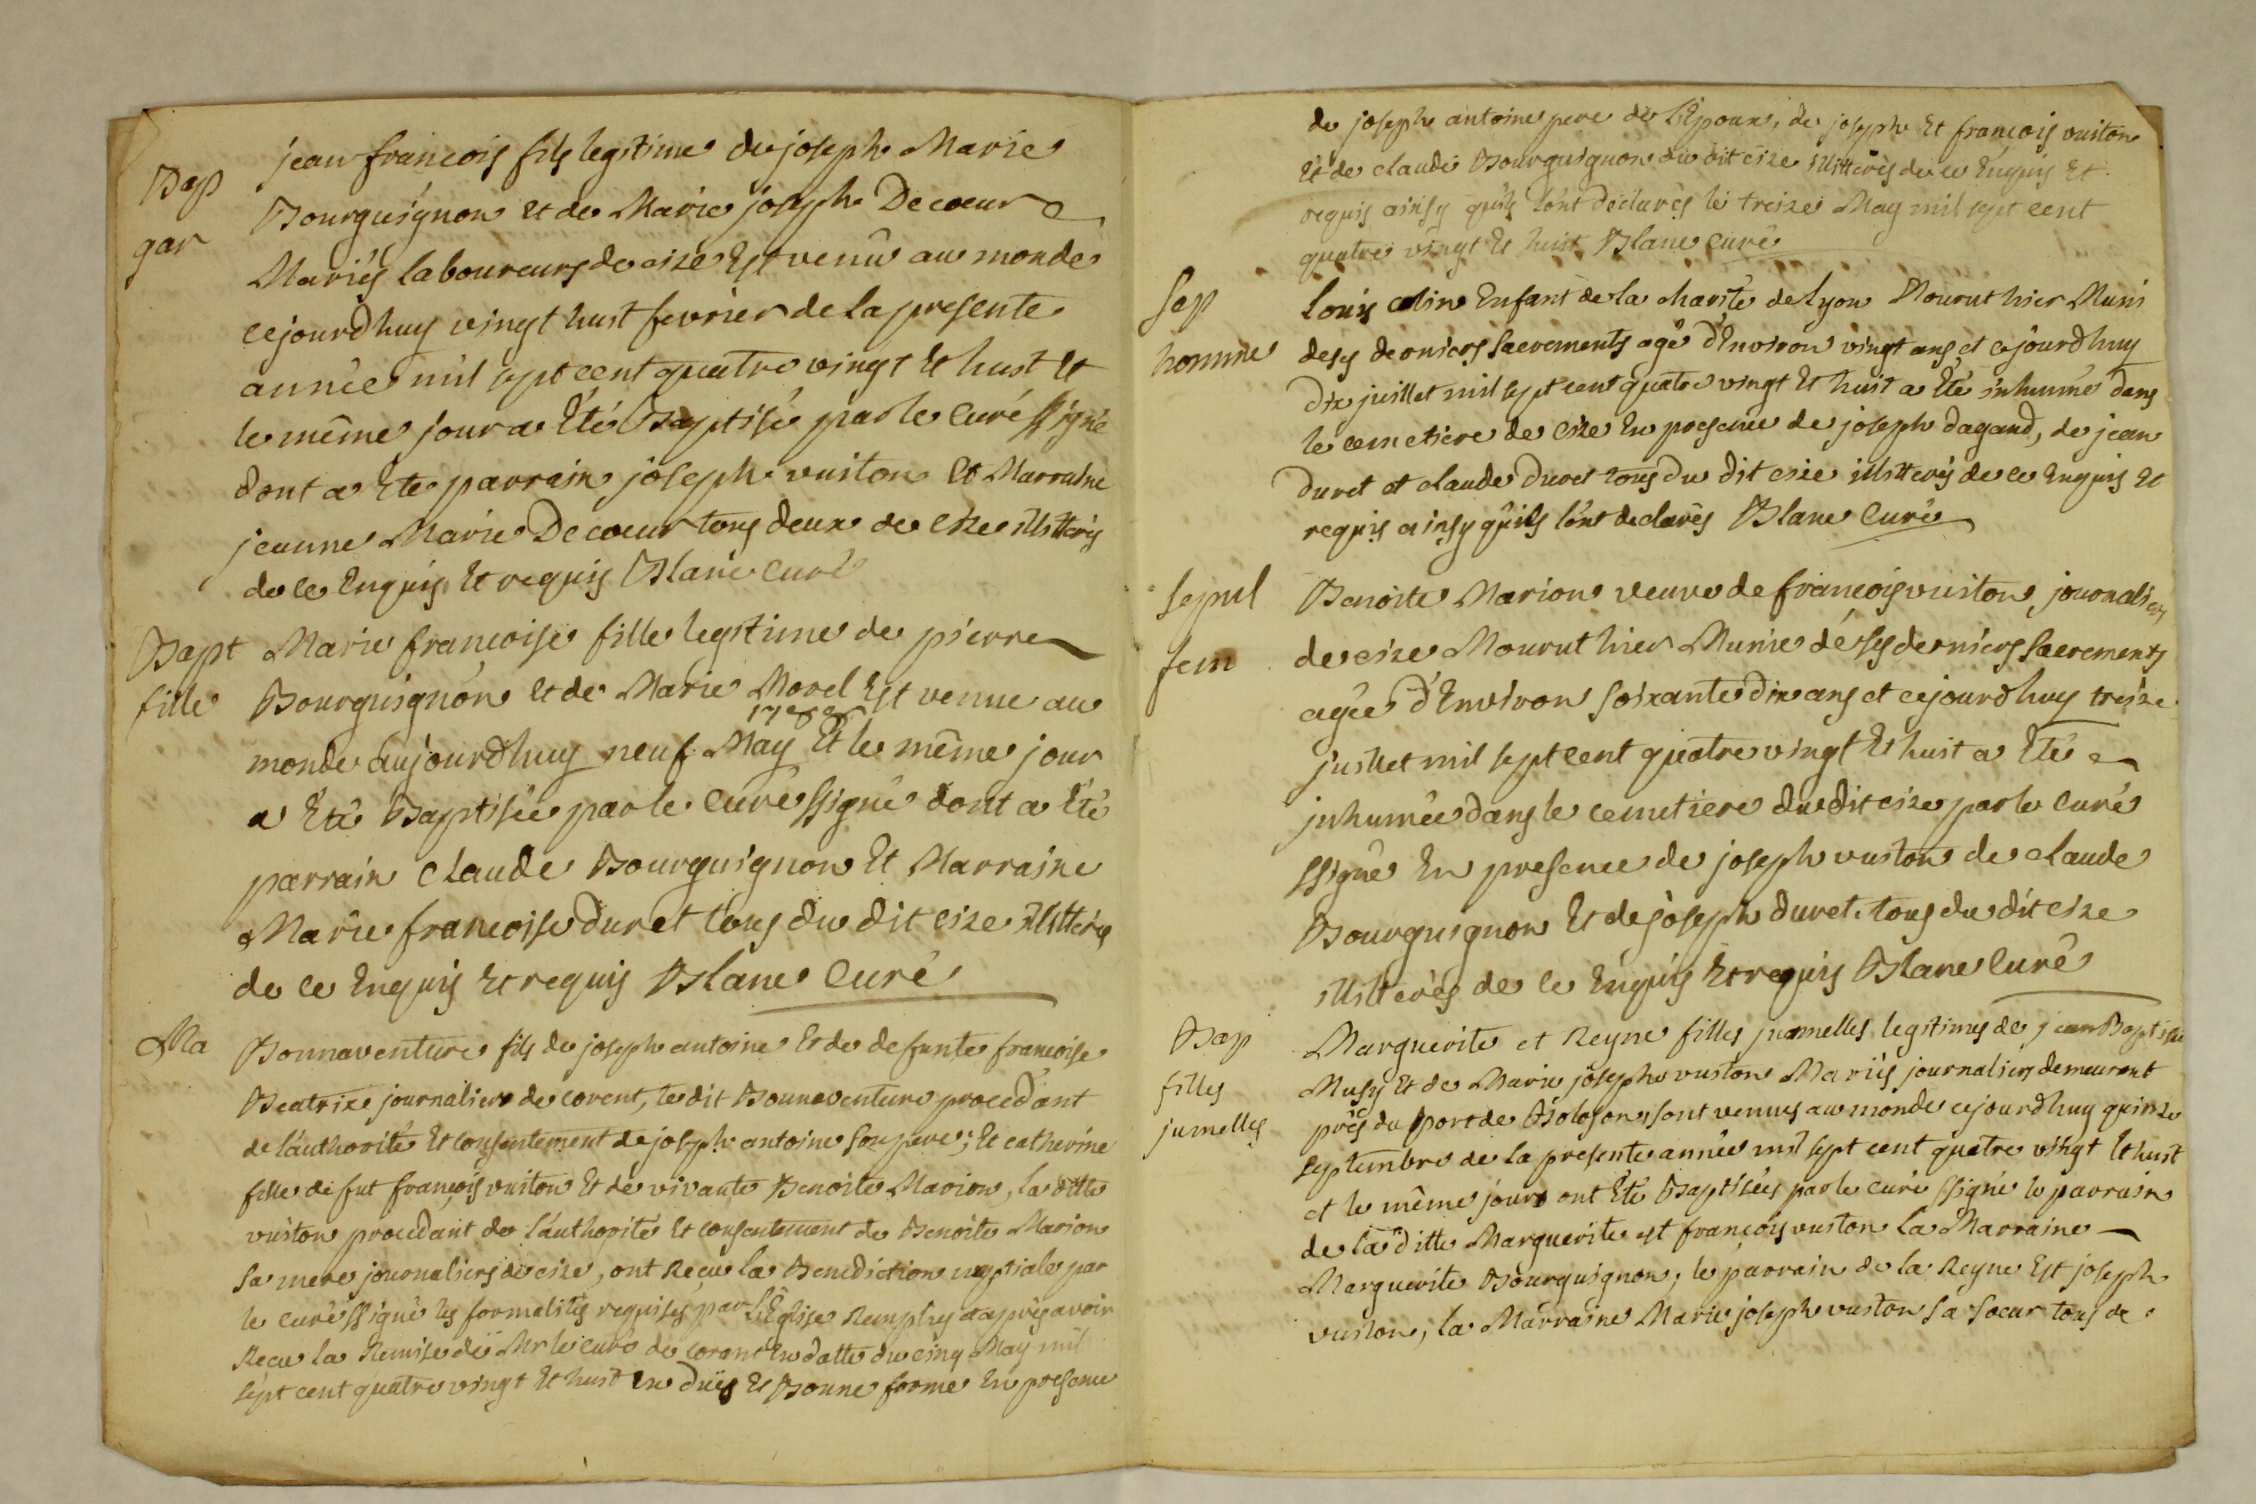 Bap
gar
jean francois fils legitime de joseph Marie
Bourguignon et de Marie joseph Decoeur
Mariés laboureurs de cize Est venu au monde
cejourdhuy vingt huit fevrier de la presente
année mil sept cent quatre vingt Et huit Et
le même jour a Eté Baptisé par le Curé ssigné
dont a Ete parrain joseph vuiton Et Marraine
jeanne Marie Decoeur tous deux de Cize illitterés
de ce Enquis Et requis Blanc Curé
Bapt
fille
Marie francoise fille legitime de pierre
Bourguignon et de Marie Morel Est venue au
1788
monde aujourdhuy neuf May Et le même jour
a Eté Baptisée par le Curé ssigné dont a Eté
parrain Claude Bourguignon Et Marraine
Marie francoise duret tous du dit cize illitterés
de ce Enquis Et requis Blanc Curé
Ma
Bonnaventure fils de joseph antoine Et de defunte francoise
Beatrix journaliers de corent, le dit Bonnaventure procedant
de l'authorité Et consentement de joseph antoine son pere; Et catherine
fille de fut françois vuiton Et de vivante Benoite Marion, la ditte
vuiton procedant de l'authorité Et consentement de Benoite Marion
sa mere journaliers de cize, ont Recu la Benediction nuptiale par
le Curé ssigné les formalités requises par L'Eglise Remplies et après avoir
Recu la Remise de Mr le curé de corent En datte du cinq May mil
sept cent quatre vingt Et huit En duë Et Bonne forme En presence
de joseph antoine pere de L'Epoux, de joseph Et francois vuiton
Et de claude Bourguignon du dit cize illitterés de ce Enquis Et
requis ainsy quils l'ont declarés le treize May mil sept cent
quatre vingt Et huit Blanc Curé
Sep
homme
Louis colin Enfant de la charité de Lyon Mourut hier Muni
deses derniers Sacrements agé d'Environ vingt ans et cejourdhuy
dix juillet mil sept cent quatre vingt Et huit a Eté inhumé dans
le cemetiere de Cize En presence de joseph dagand, de jean
duret et claude duret tous du dit cize illitterés de ce Enquis Et
requis ainsy quils l'ont declarés Blanc Curé
Sepul
fem
Benoite Marion veuve de francois vuiton, journaliers
de cize Mourut hier Munie de ses derniers Sacrements
agée d'Environ soixante dix ans et cejourdhuy treize
juillet mil sept cent quatre vingt Et huit a Eté
inhumée dans le cemetiere du dit cize par le Curé
ssigné En presence de joseph vuiton de claude
Bourguignon Et de joseph duret tous du dit cize
illitterés de ce Enquis Et requis Blanc Curé
Bap
filles
jumelles
Marguerite et Reyne filles jumelles legitimes de jean Baptiste
Musy Et de Marie joseph vuiton Mariés journaliers demeurant
près du port de Bolozon, sont venues au monde cejourdhuy quinze
septembre de la presente année mil sept cent quatre vingt Et huit
et le même jour ont Eté Baptisées par le Curé ssigné le parrain
de la ditte Marguerite est françois vuiton la Marraine
Marguerite Bourguignon, le parrain de la Reyne Est joseph
vuiton, la Marraine Marie joseph vuiton Sa Soeur tous de